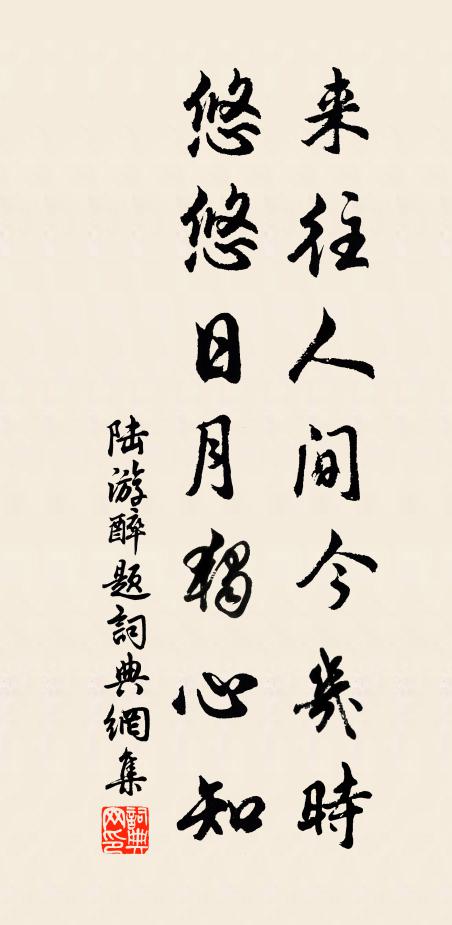 来往人间今幾時
悠悠日月獨心知
陆游醉题詞典網集
詞典網印